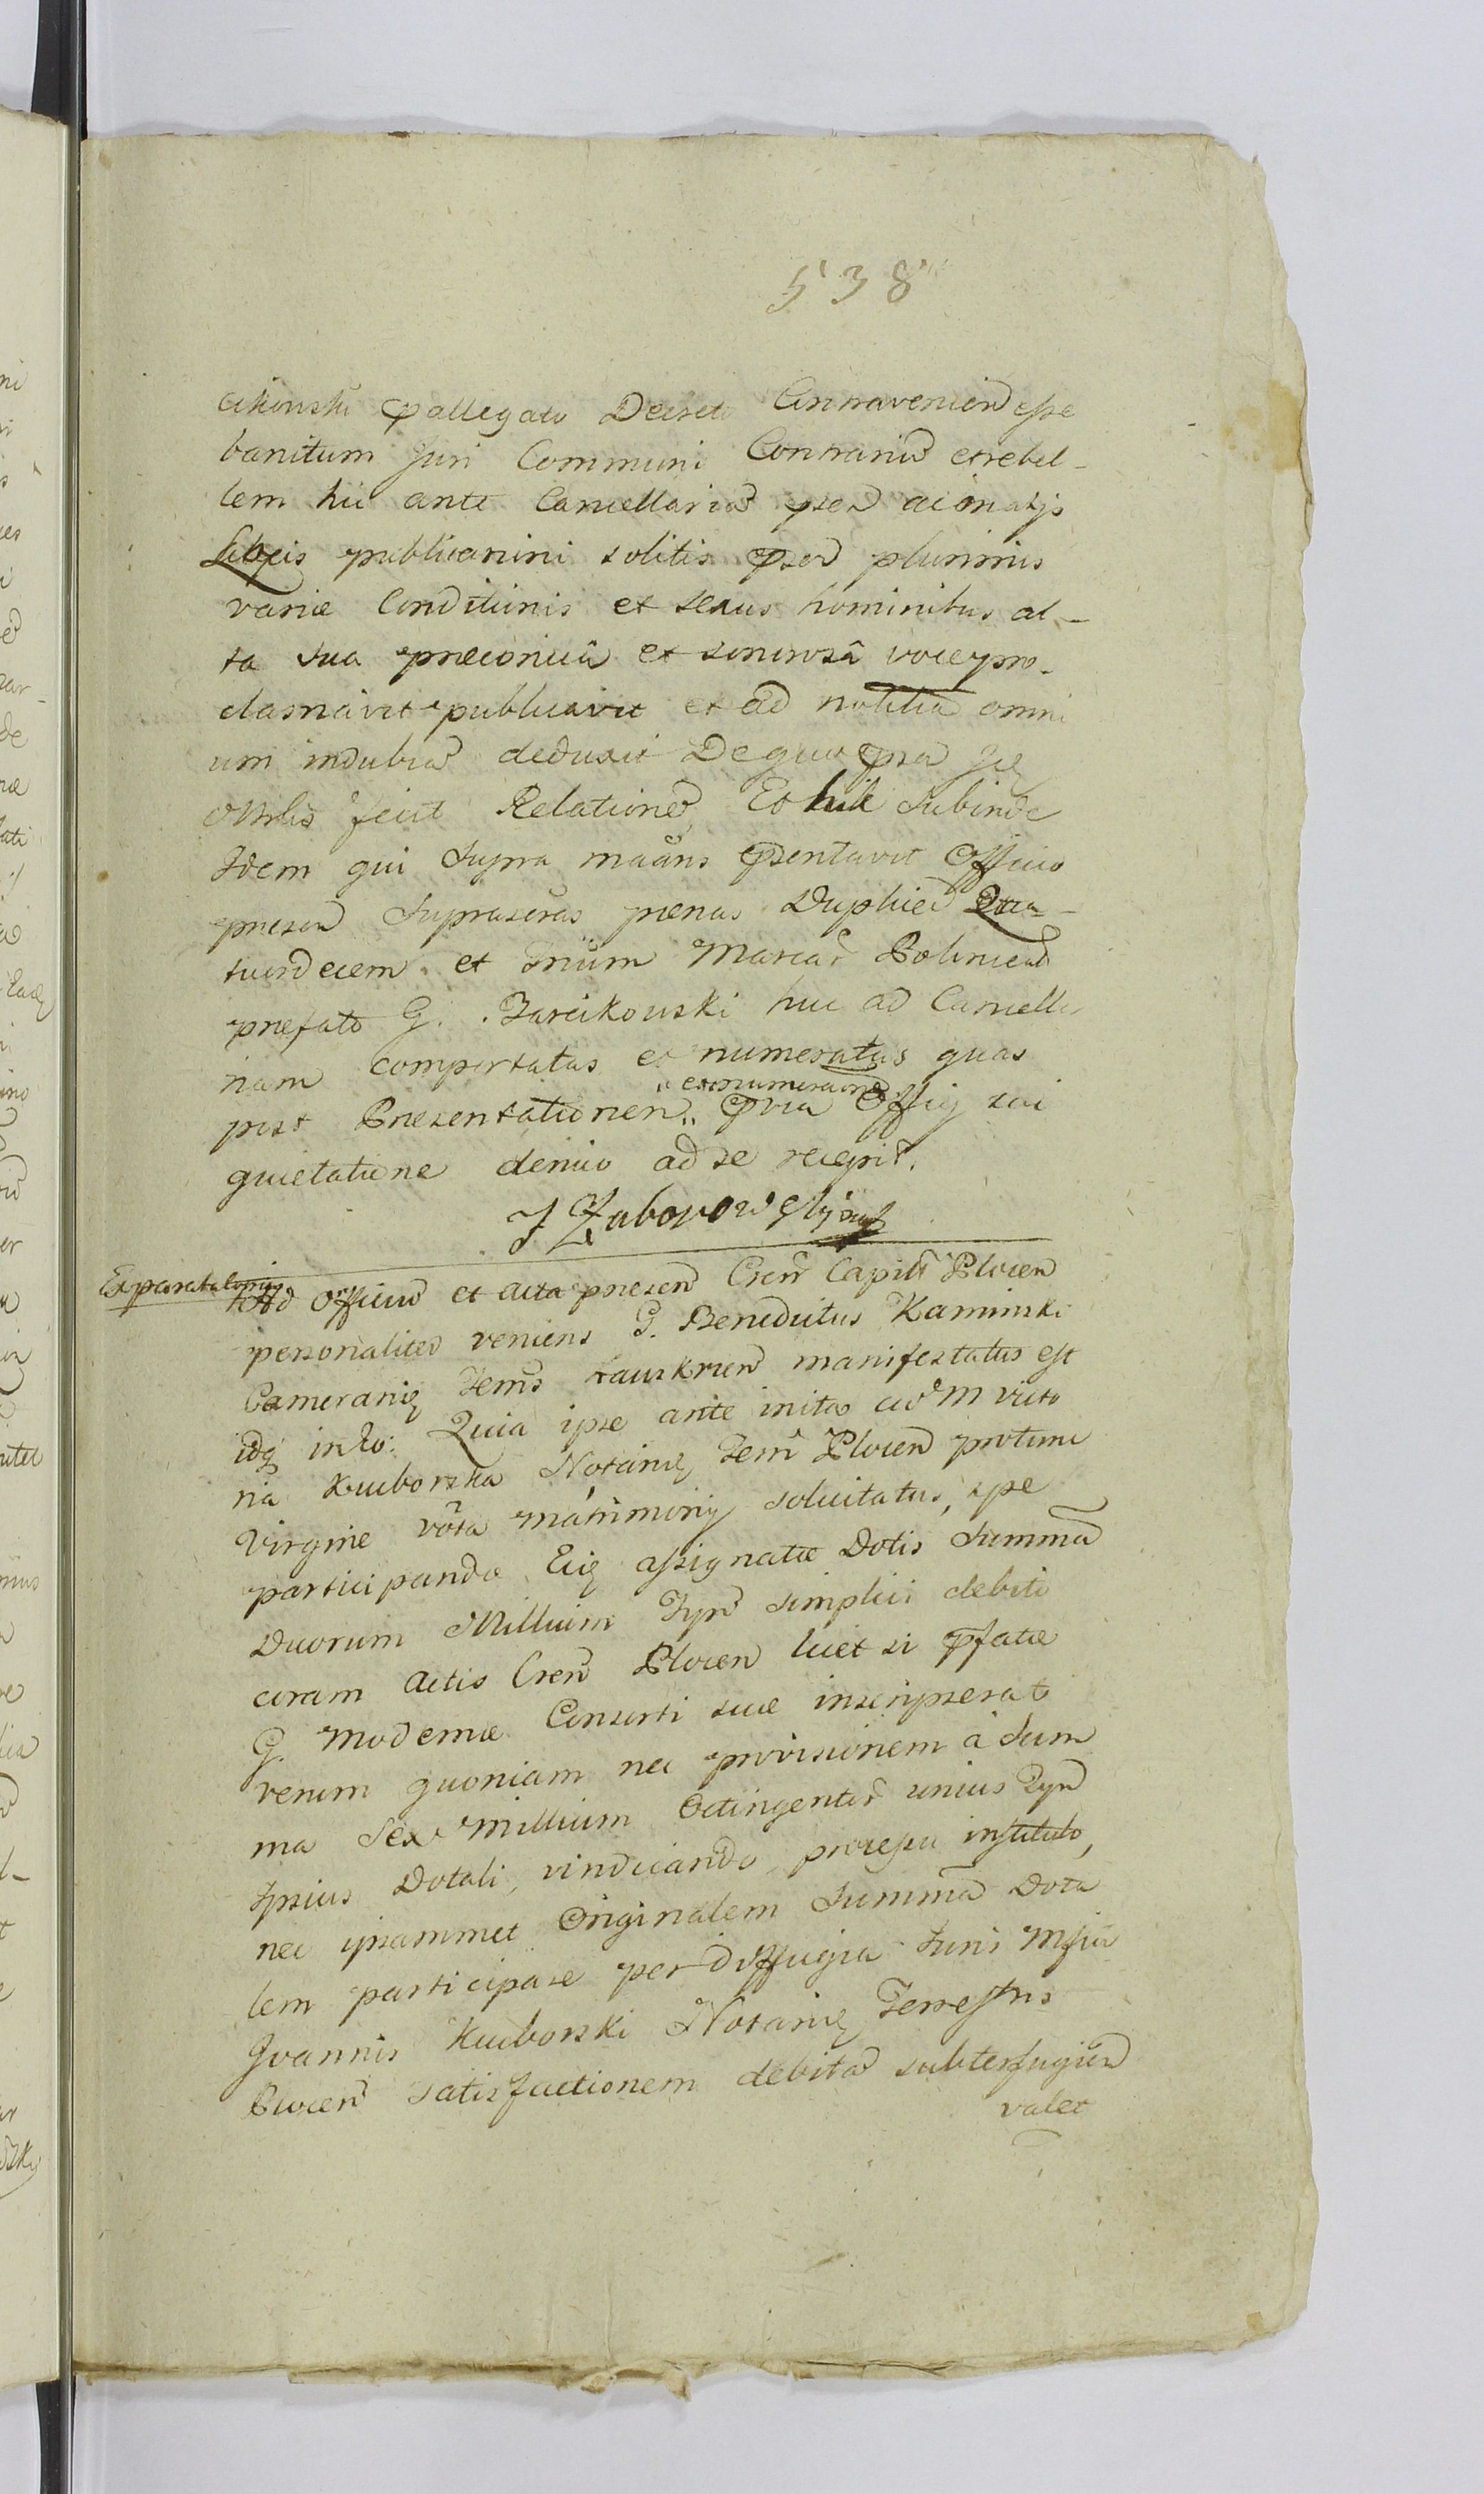 538
cikowski pallegato Decreto Contravenien esse
banitum Juri Communi Contrariu et rebel-
lem hic ante Cancellaria psen
publicarini solitis psen plurimis
variæ Conditionis et sexus hominibus al-
ta sua præconicâ et sonorosâ voce pro-
clamavit publicavit et ad notitia omni
um indubia deduxit De quo
fecit Relatione, Et hic Subinde
Idem qui Supra psentavit Officio
presen Suprascras penas Duplice Qua-
tuordecem et Trium Marcar Polonical
prefato G. Jarcikowski huc ad Cancella
riam comportatas et numeratas quas
et enumeratione
post Presentationem Offig sui
quietatione denuo ad se recepit.
J Zaborowski
Ad officiu et acta presen Cren Capitl Plocen
personaliter veniens G. Benedictus Kaminski
Camerarig manifestatus est
idq in Eo: Quia ipse ante inita cu M victo
ria Kuiborska Notarig Terri Plocen protunc
Virgine vota matrimonij solicitatus, spe
participandæ Eig assignatæ Dotis Summa
Duorum Millium Typ simplici debiti
coram actis Cren Plocen licet si pfatæ
G. modernæ Consorti suæ inscripserat
verum quoniam nec provisionem â Sum
ma Sex Millium Octingentor unius Typ
Ipsius Dotali, vindicando processu instituto,
nec ipsammet Originalem Summa Dota
lem participare per diffugia Juris Mfici
Joannis Kuiborski Notarig Terrestris
Plocen satisfactionem debita subterfugien
valet